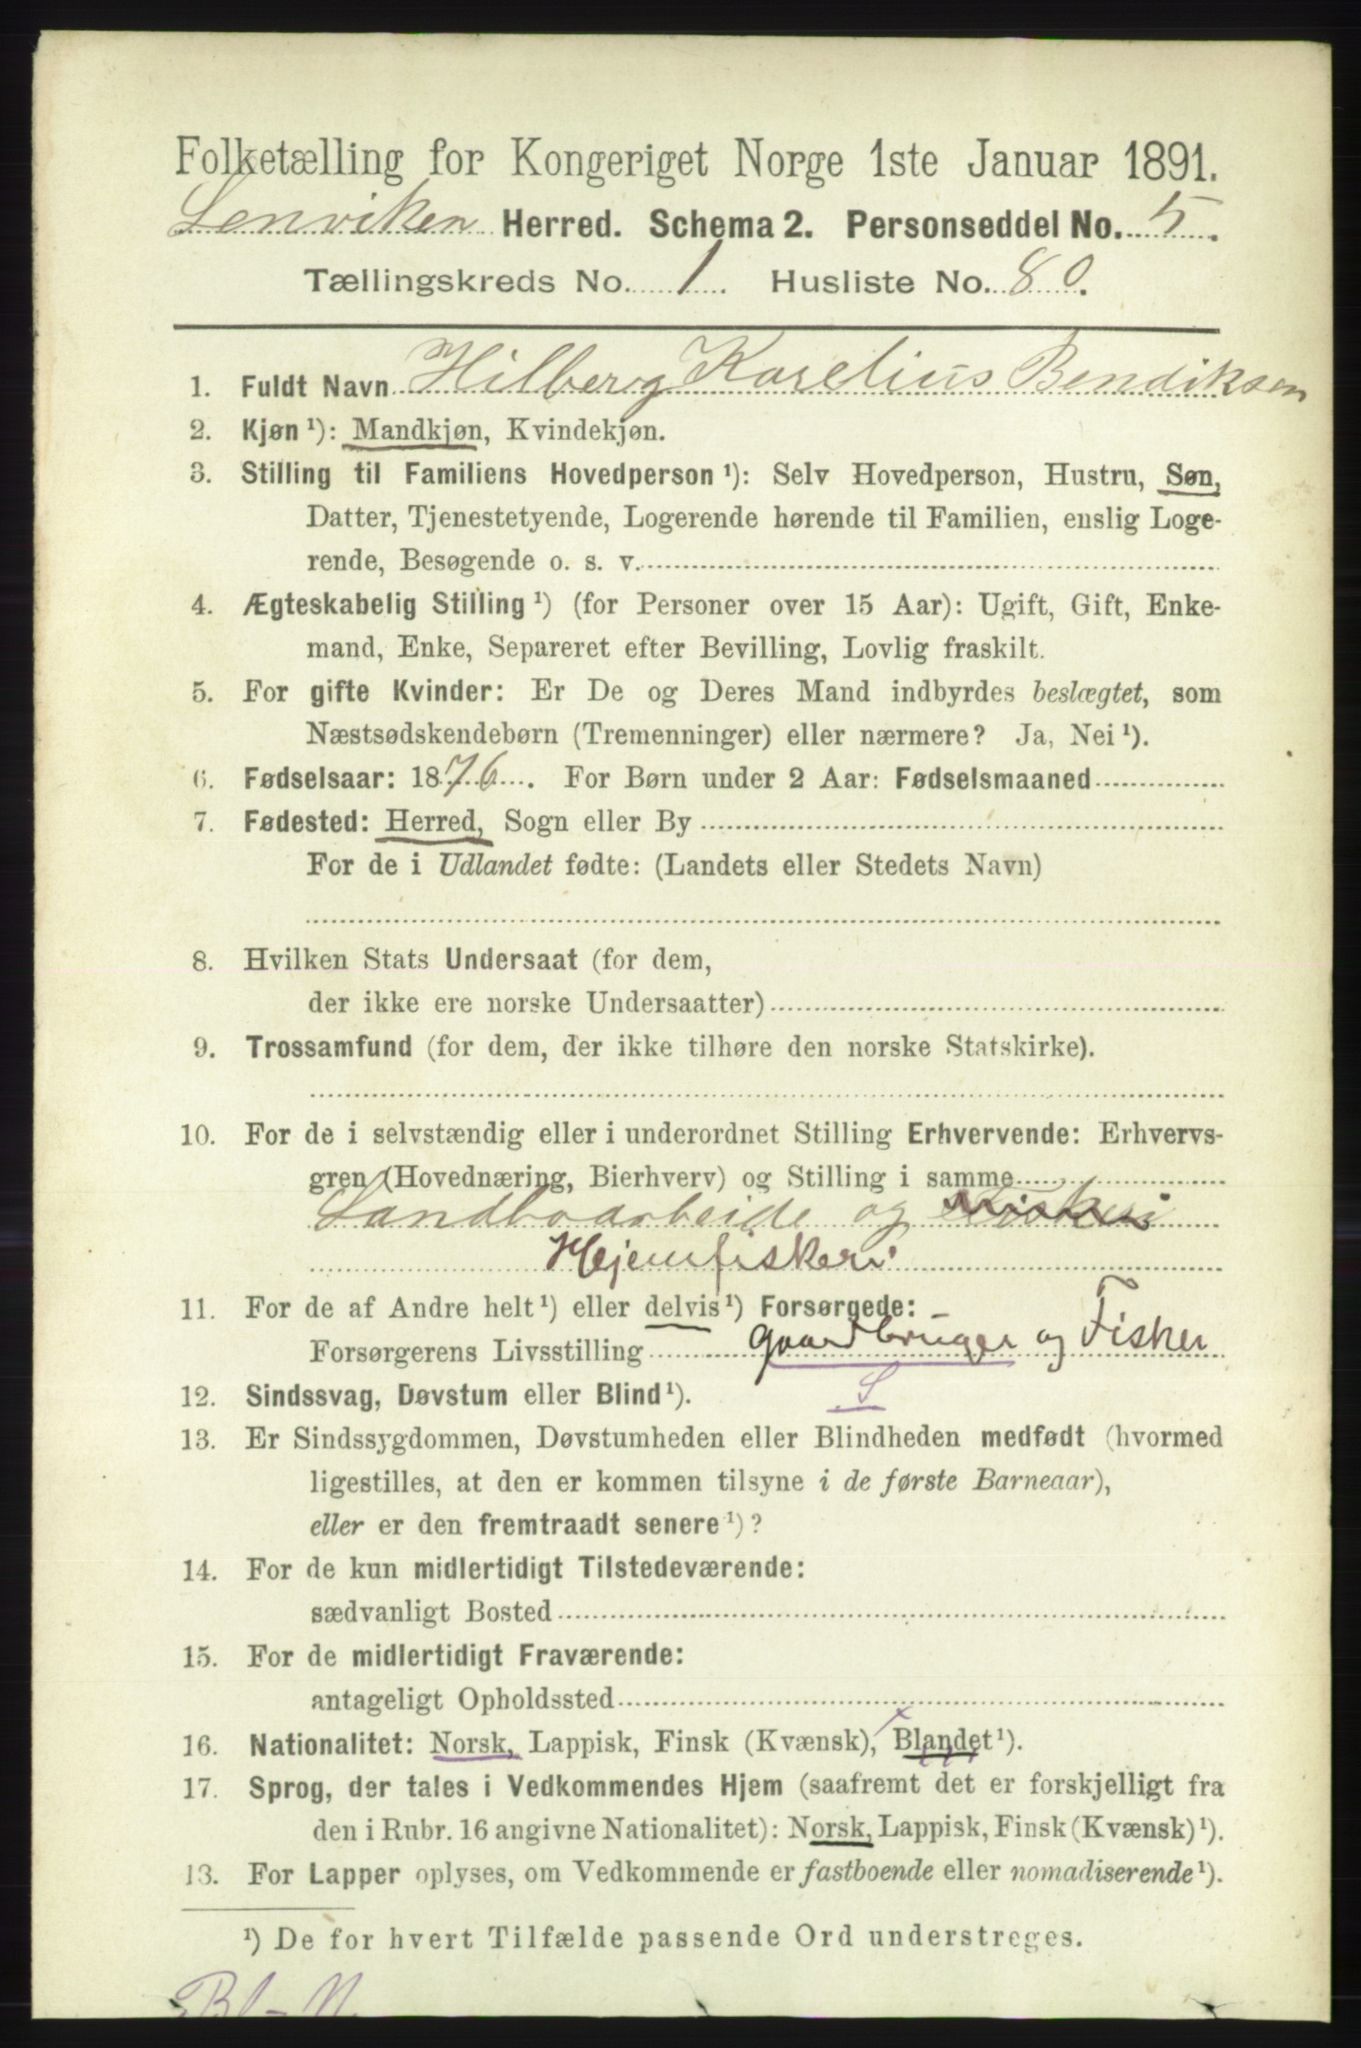 Folketælling for Kongeriget Norge 1ste Januar 1891.
Lenviken Herred. Schema 2. Personseddel No. 5.
Tællingskreds No. 1. Husliste No. 80.
1. Fuldt Navn Hilberg Karelius Bendiksen
2. Kjøn ¹): Mandkjøn, Kvindekjøn.
3. Stilling til Familiens Hovedperson ¹): Selv Hovedperson, Hustru, Søn,
Datter, Tjenestetyende, Logerende hørende til Familien, enslig Loge-
rende, Besøgende o. s. v.
4. Ægteskabelig Stilling ¹) (for Personer over 15 Aar): Ugift, Gift, Enke-
mand, Enke, Separeret efter Bevilling, Lovlig fraskilt.
5. For gifte Kvinder: Er De og Deres Mand indbyrdes beslægtet, som
Næstsødskendebørn (Tremenninger) eller nærmere? Ja, Nei ¹).
6. Fødselsaar: 1876. For Børn under 2 Aar: Fødselsmaaned
7. Fødested: Herred, Sogn eller By
For de i Udlandet fødte: (Landets eller Stedets Navn)
8. Hvilken Stats Undersaat (for dem,
der ikke ere norske Undersaatter)
9. Trossamfund (for dem, der ikke tilhøre den norske Statskirke).
10. For de i selvstændig eller i underordnet Stilling Erhvervende: Erhvervs-
gren (Hovednæring, Bierhverv) og Stilling i samme
Landboarbeide og Fiskeri
Hjemfiskeri
11. For de af Andre helt ¹) eller delvis ¹) Forsørgede:
Forsørgerens Livsstilling gaardbruger og Fisker
12. Sindssvag, Døvstum eller Blind ¹). S
13. Er Sindssygdommen, Døvstumheden eller Blindheden medfødt (hvormed
ligestilles, at den er kommen tilsyne i de første Barneaar),
eller er den fremtraadt senere ¹)?
14. For de kun midlertidigt Tilstedeværende:
sædvanligt Bosted
15. For de midlertidigt Fraværende:
antageligt Opholdssted
16. Nationalitet: Norsk, Lappisk, Finsk (Kvænsk), Blandet ¹).
17. Sprog, der tales i Vedkommendes Hjem (saafremt det er forskjelligt fra
den i Rubr. 16 angivne Nationalitet): Norsk, Lappisk, Finsk (Kvænsk) ¹).
13. For Lapper oplyses, om Vedkommende er fastboende eller nomadiserende ¹).
¹) De for hvert Tilfælde passende Ord understreges.
Bl-N